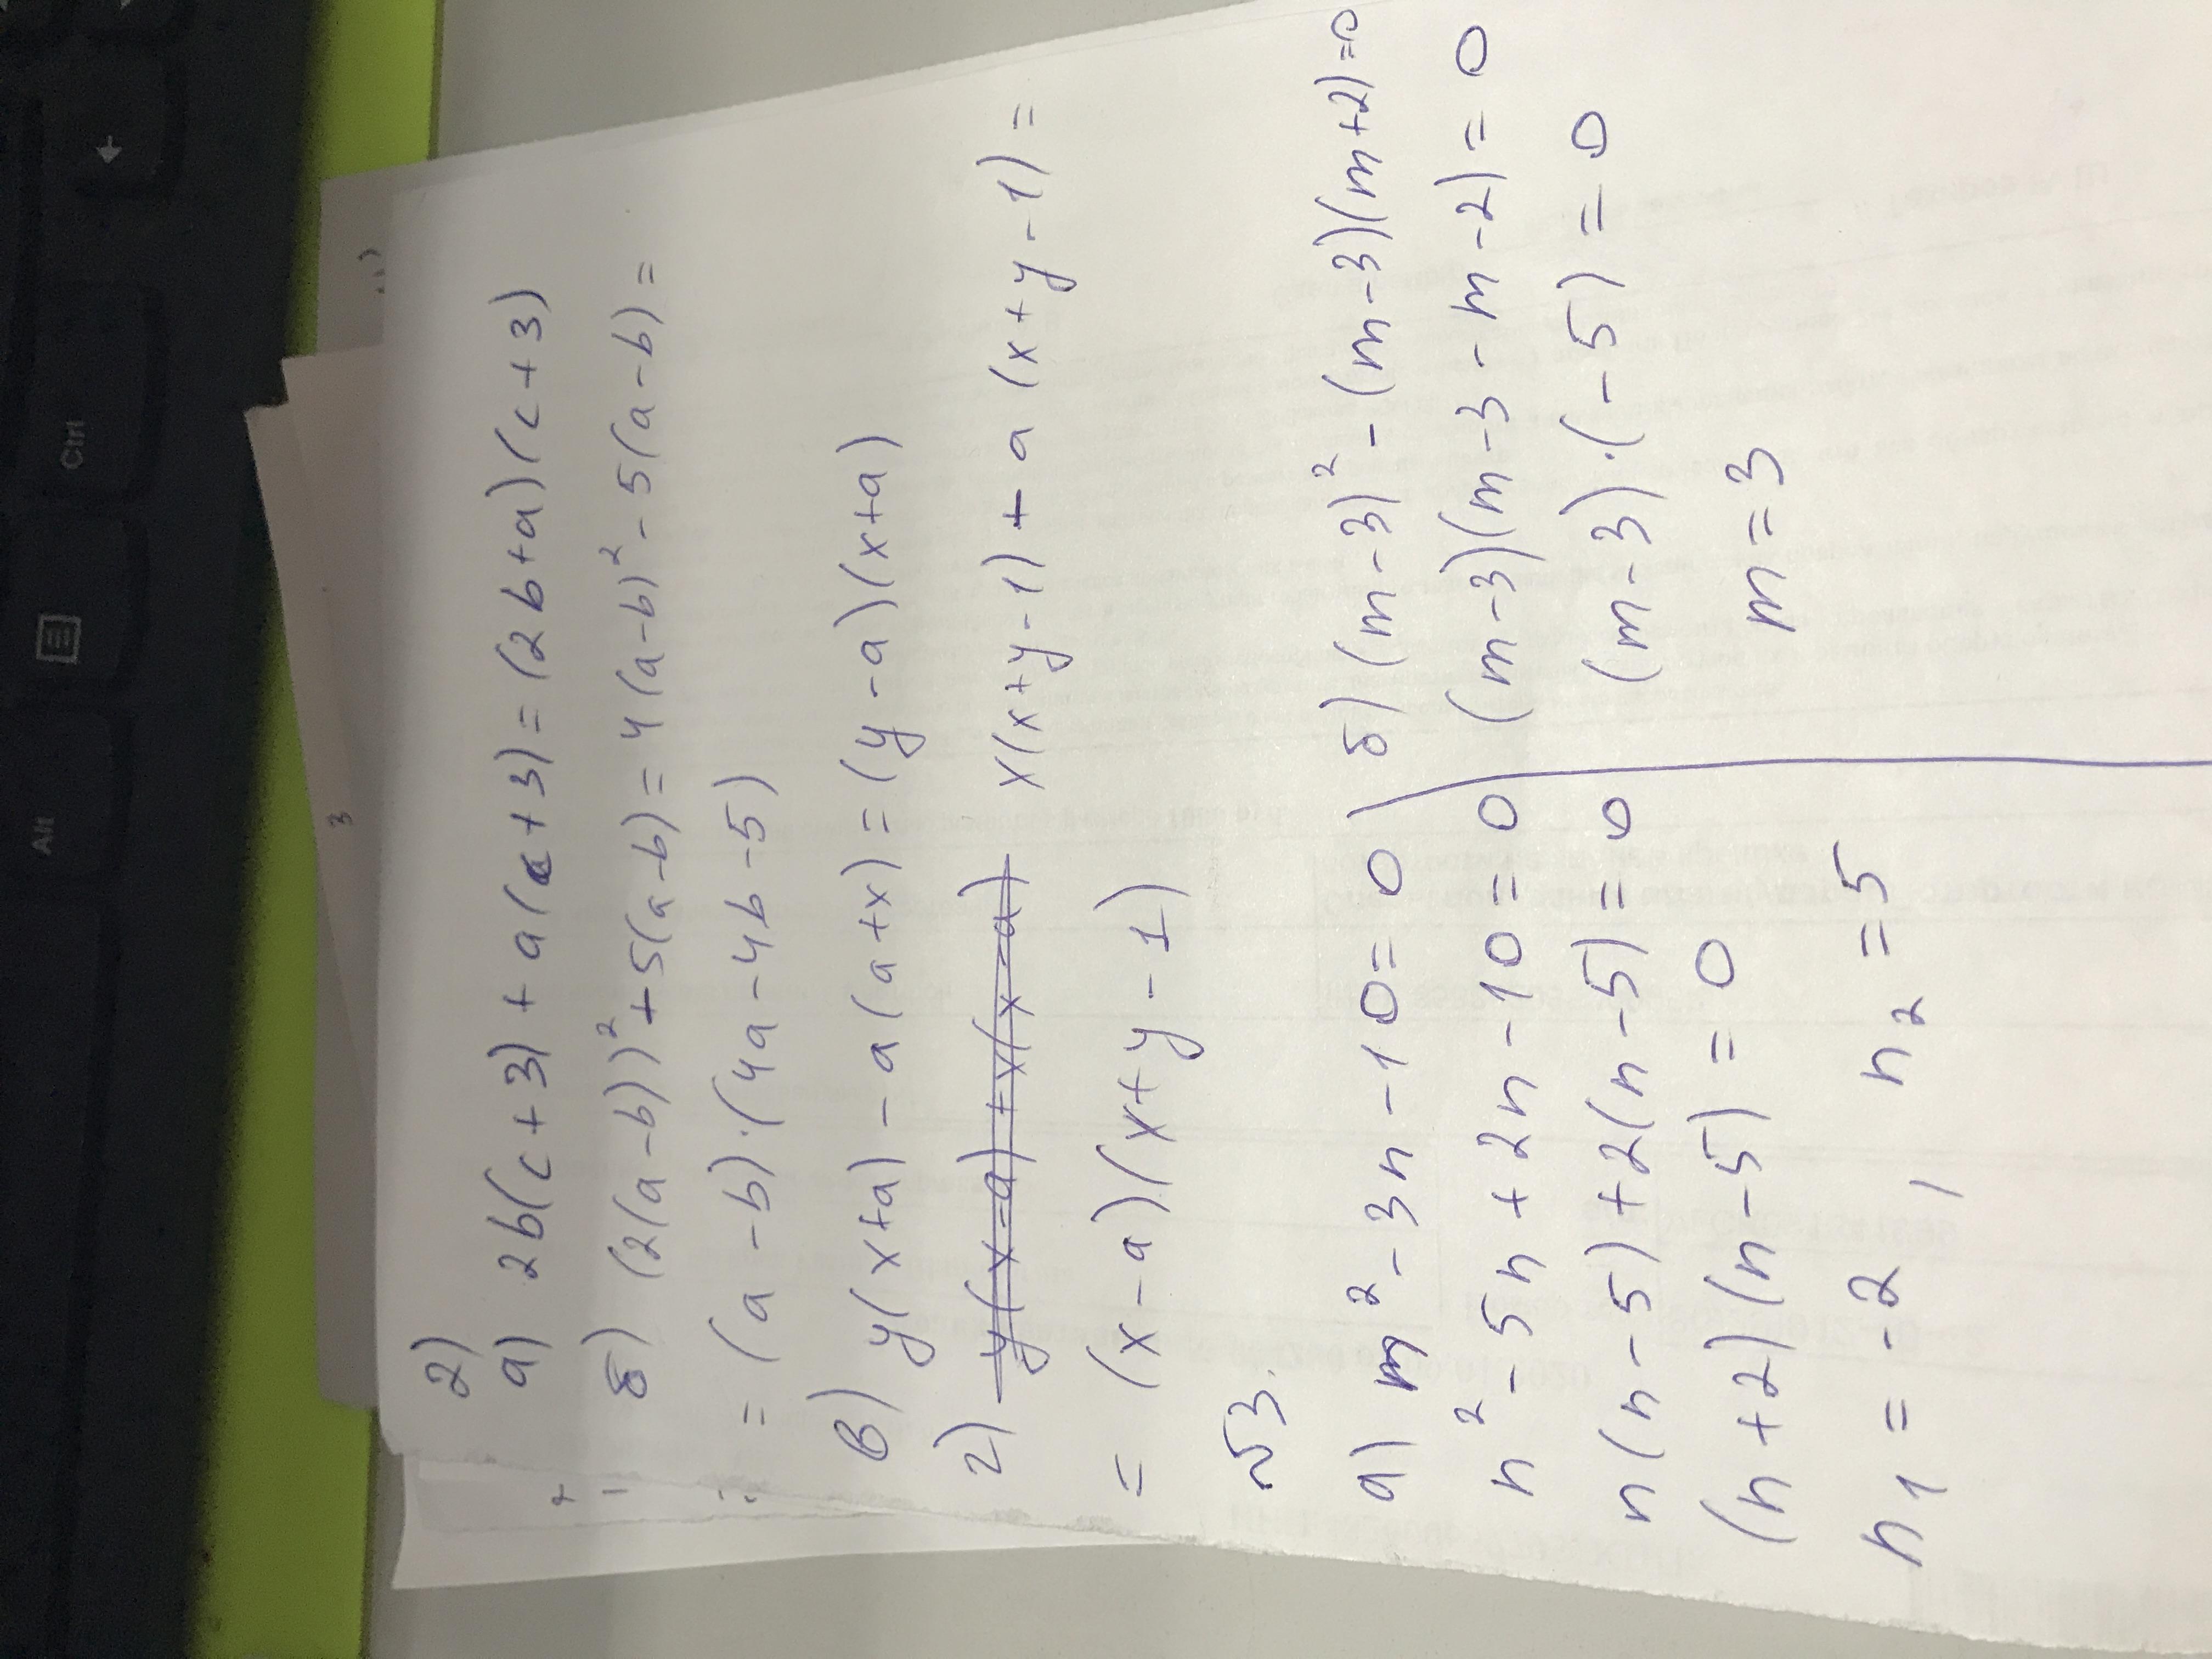 2)
а) 2b(c+3) + a(c+3) = (2b+a)(c+3)
б) (2(a-b))² + 5(a-b) = 4(a-b)² - 5(a-b) =
= (a-b)·(4a-4b-5)
в) y(x+a) - a(a+x) = (y-a)(x+a)
г) y(x-a) + x(x-a) x(x+y-1) + a(x+y-1) =
= (x-a)(x+y-1)
№3.
а) m² - 3n - 10 = 0
n² - 5n + 2n - 10 = 0
n(n-5) + 2(n-5) = 0
(n+2)(n-5) = 0
n₁ = -2, n₂ = 5
б) (m-3)² - (m-3)(m+2) = 0
(m-3)(m-3-m-2) = 0
(m-3)·(-5) = 0
m = 3
Alt
Ctrl
3